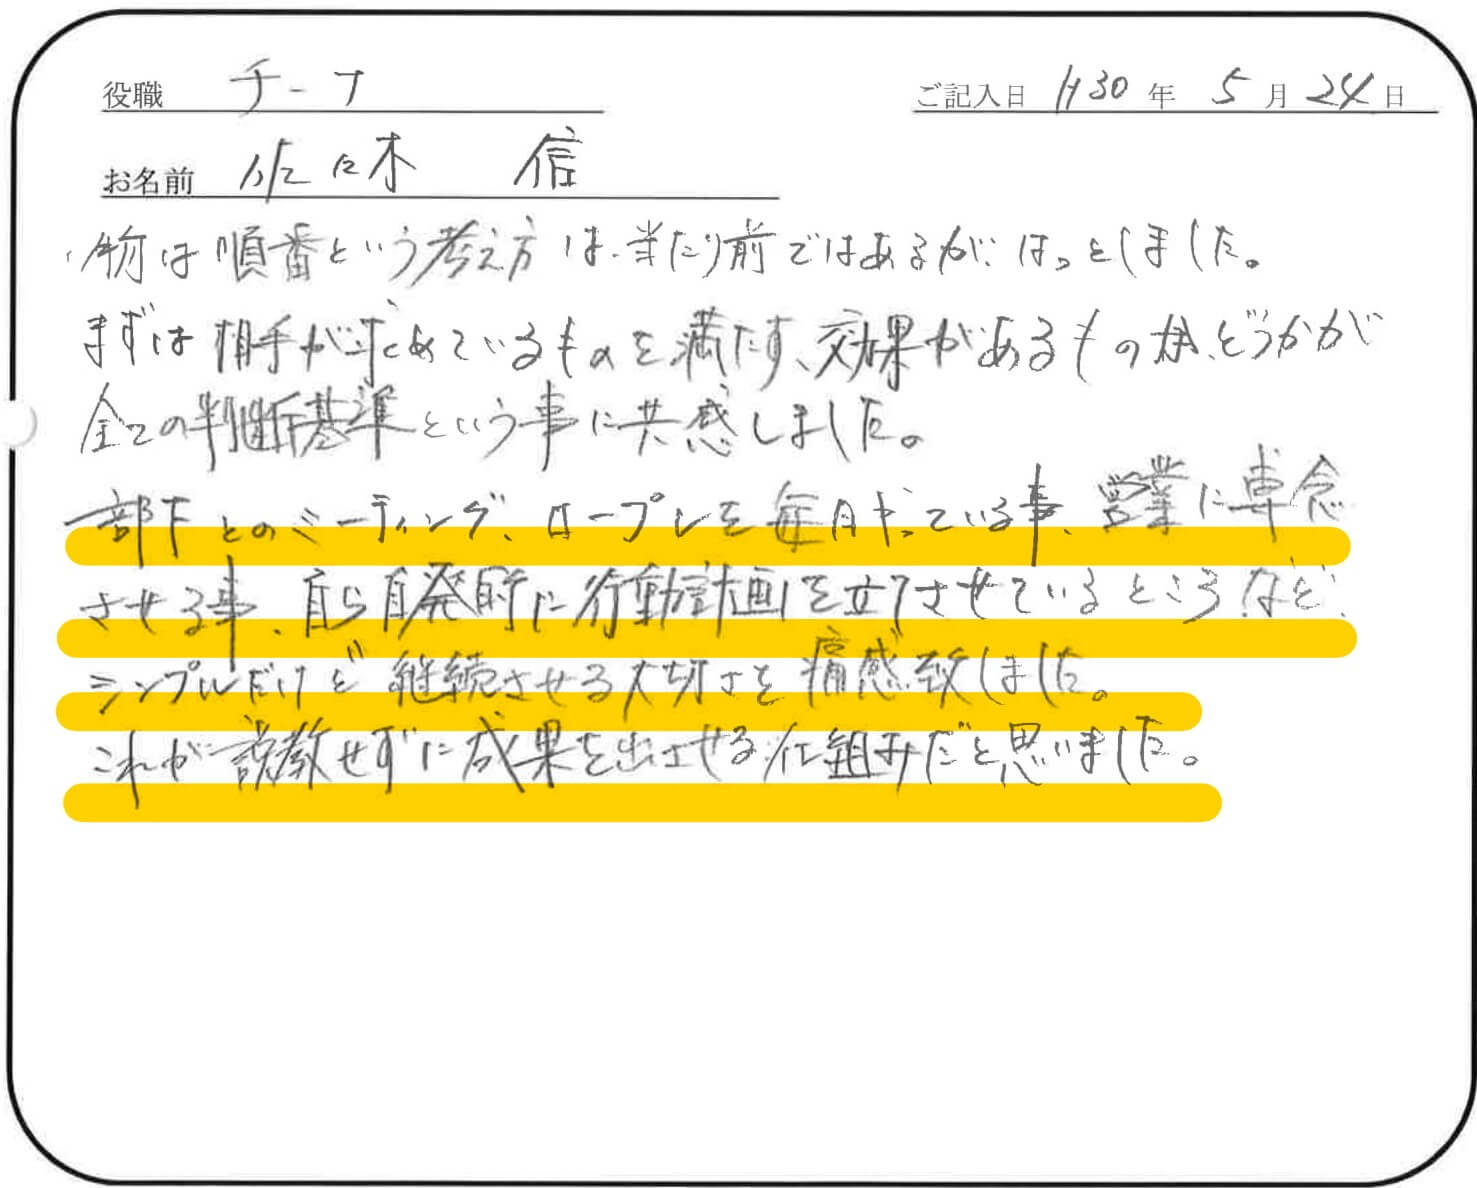 役職 チーフ
ご記入日 H30年 5月24日
お名前 佐々木 信
・物は順番という考え方は、当たり前ではあるが、はっとしました。
まずは相手が求めているものを満たす、効果があるものか、どうかが
全ての判断基準という事に共感しました。
部下とのミーティング、ロープレを毎月やっている事、営業に専念
させる事、自ら自発的に行動計画を立てさせているところなど、
シンプルだけど継続させる大切さを痛感致しました。
これが説教せずに成果を出させる仕組みだと思いました。